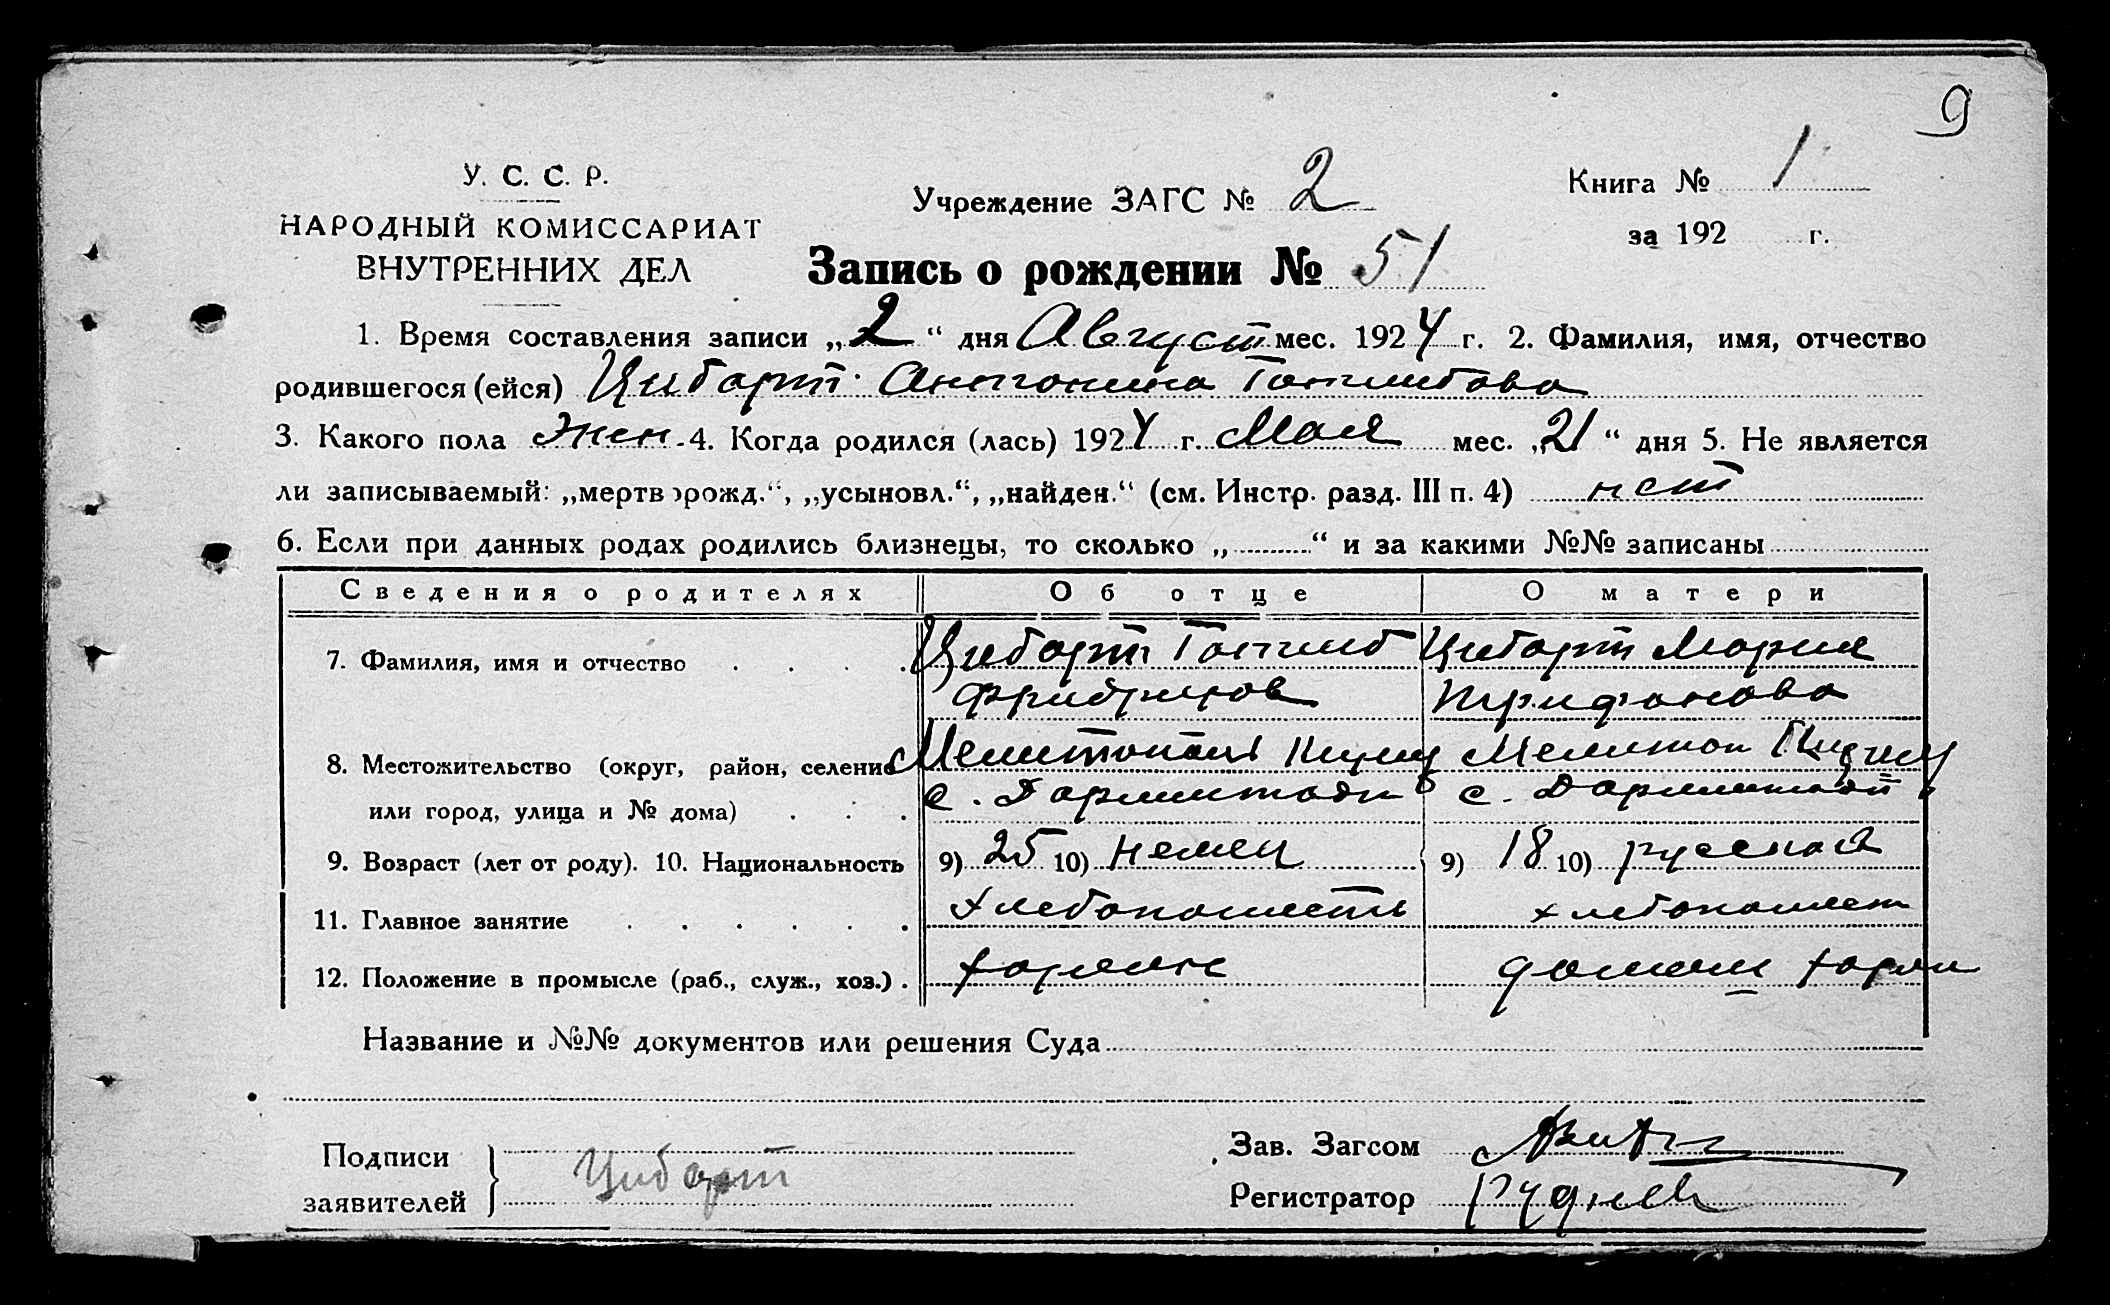 9
У. С. С. Р.
НАРОДНЫЙ КОМИССАРИАТ
ВНУТРЕННИХ ДЕЛ
Учреждение ЗАГС № 2
Книга № 1
за 192 г.
Запись о рождении № 51
1. Время составления записи „2“ дня Август мес. 1924 г. 2. Фамилия, имя, отчество
родившегося (ейся) Цибарт Антонина Готлибова
3. Какого пола жен. 4. Когда родился (лась) 1924 г. Мая мес. „21“ дня 5. Не является
ли записываемый: „мертворожд.“, „усыновл.“, „найден.“ (см. Инстр. разд. III п. 4) нет
6. Если при данных родах родились близнецы, то сколько „..........“ и за какими №№ записаны
Сведения о родителях Об отце О матери
7. Фамилия, имя и отчество Цибарт Готлиб Цибарт Мария
Фридрихов Трифонова
8. Местожительство (округ, район, селение Мелитополь Мелитоп
или город, улица и № дома) с. Дармштадт с. Дармштадт
9. Возраст (лет от роду). 10. Национальность 9) 25 10) немец 9) 18 10) русская
11. Главное занятие хлебопашест хлебопашест
12. Положение в промысле (раб., служ., хоз.) хозяин домаш
Название и №№ документов или решения Суда
Подписи
заявителей
Цибарт
Зав. Загсом
Регистратор Руднев